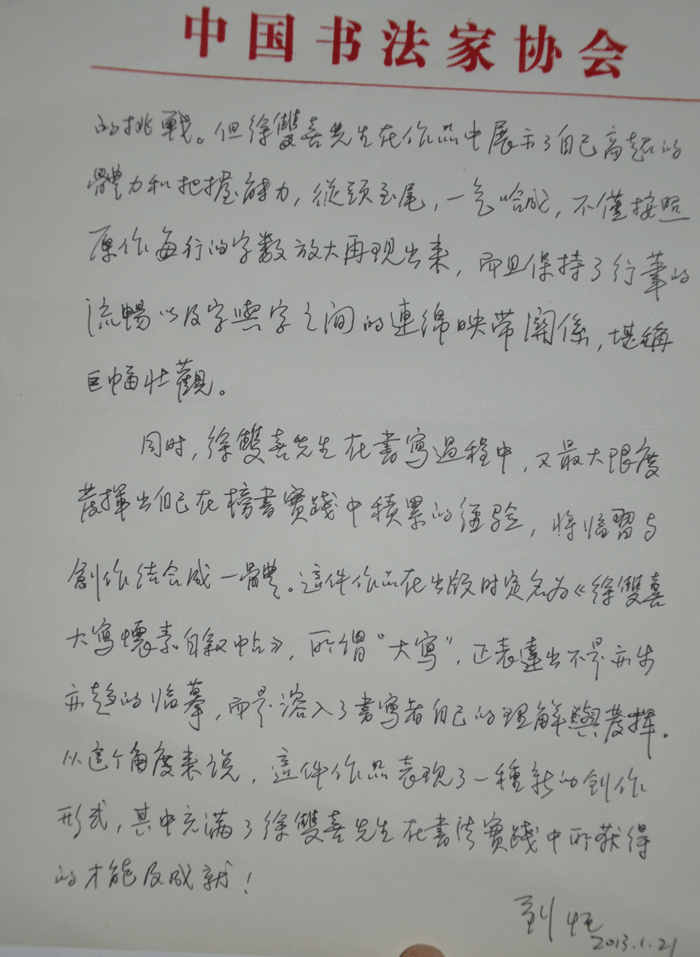 中国书法家协会
的挑戰。但徐雙喜先生在作品中展示了自己高超的
體力和把握能力，從頭至尾，一气哈成，不僅按照
原作每行的字数放大再现出来，而且保持了行筆的
流暢以及字與字之间的連绵映带關係，堪稱
巨幅壮觀。
同时，徐雙喜先生在書寫過程中，又最大限度
發揮出自己在榜書實踐中積累的经验，将临習与
創作结合成一體。這件作品在出版时定名为《徐雙喜
大寫懷素自叙帖》，所谓“大寫”，正表達出不是亦步
亦趋的临摹，而是溶入了書写者自己的理解與發揮。
从這个角度来说，這件作品表现了一種新的創作
形式，其中充满了徐雙喜先生在書法實踐中所获得
的才能及成就！
刘恒
2013.1.21